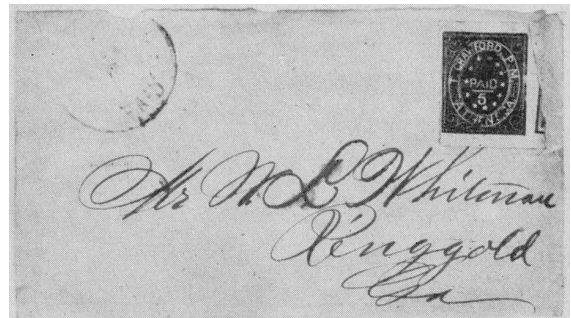 T. CRAWFORD, P. M.
PAID
5
ATHENS, GA
Mr W. L Whitman
Ringgold
Ga